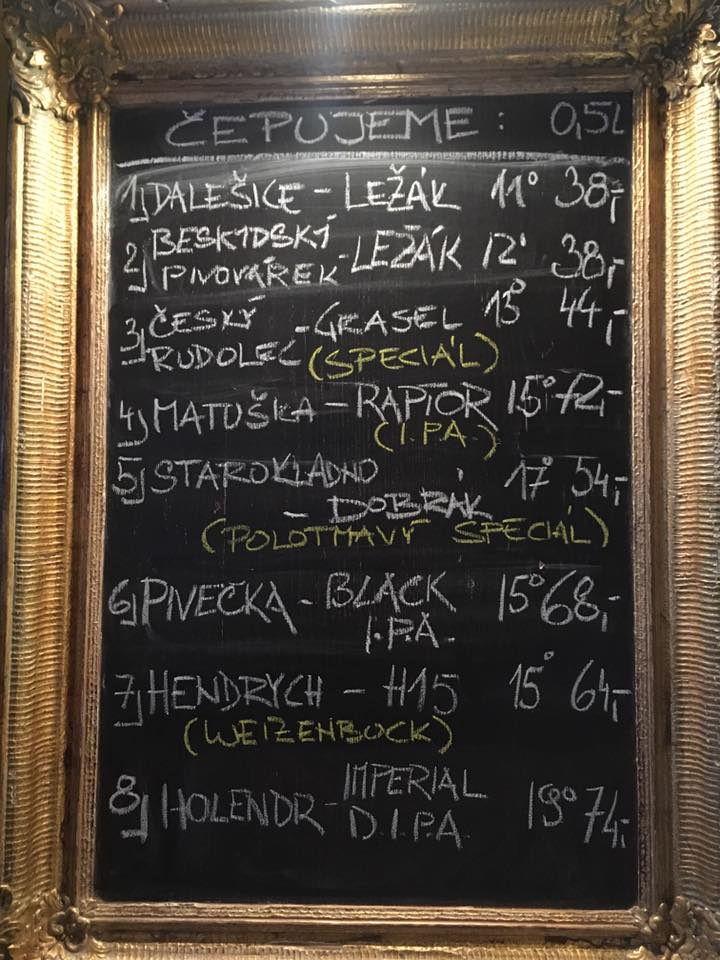 ČEPUJEME: 0,5l
1) DALEŠICE - LEŽÁK 11° 38,-
2) BESKYDSKÝ
PIVOVÁREK - LEŽÁK 12° 38,-
3) ČESKÝ - GRASEL 13° 44,-
RUDOLEC (SPECIÁL)
4) MATUŠKA - RAPTOR 15° 72,-
(I.P.A.)
5) STAROKLADNO 17° 54,-
- DOBRÁK
(POLOTMAVÝ SPECIÁL)
6) PIVEČKA - BLACK 15° 68,-
I.P.A.
7) HENDRYCH - H15 15° 64,-
(WEIZENBOCK)
8) HOLENDR - IMPERIAL 19° 74,-
D.I.P.A.